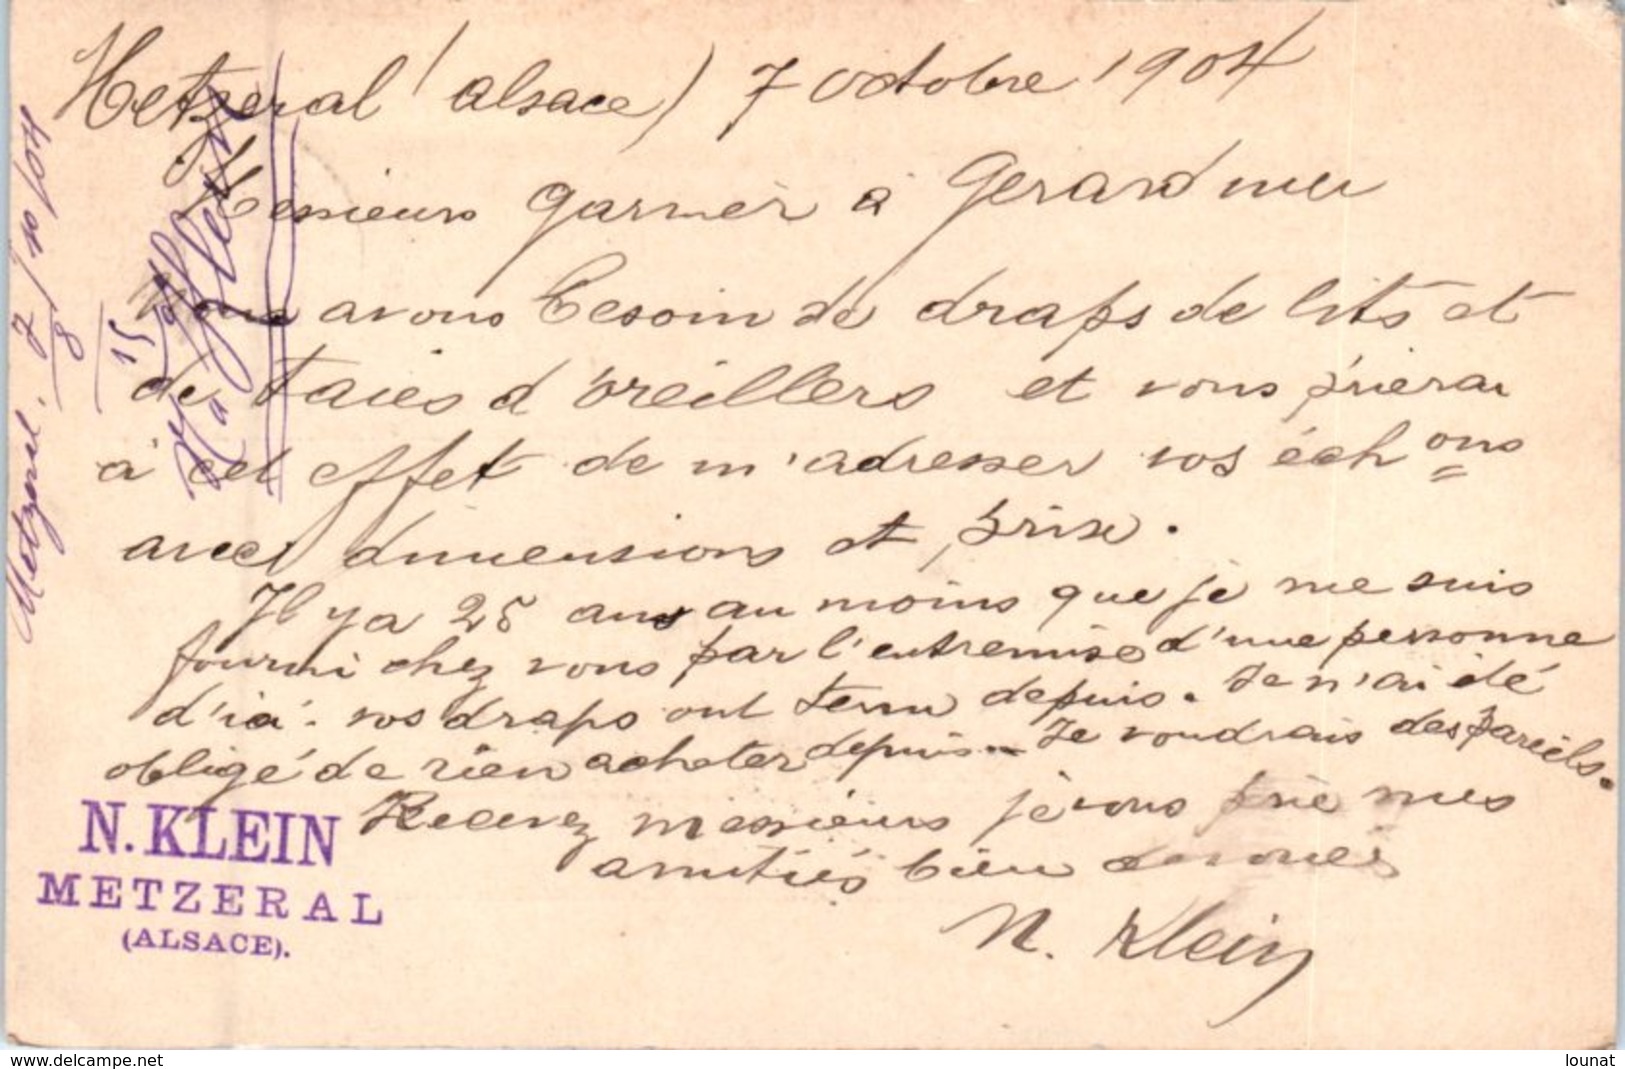 Metzeral (alsace) 7 octobre 1904
Messieurs Garnier à Gerardmer
Nous avons besoin de draps de lits et
de taies d'oreillers et vous prierai
à cet effet de m'adresser vos échons
avec dimensions et prix.
Il y a 25 ans au moins que je me suis
fourni chez vous par l'entremise d'une personne
d'ici. vos draps ont tenu depuis. Je n'ai été
obligé de rien acheter depuis. Je voudrais des pareils.
Recevez messieurs je vous prie mes
amitiés bien dévoués
N. Klein
N. KLEIN
METZERAL
(ALSACE).
Metzeral, 7/10/04
8
15
N. Klein
www.delcampe.net
lounat